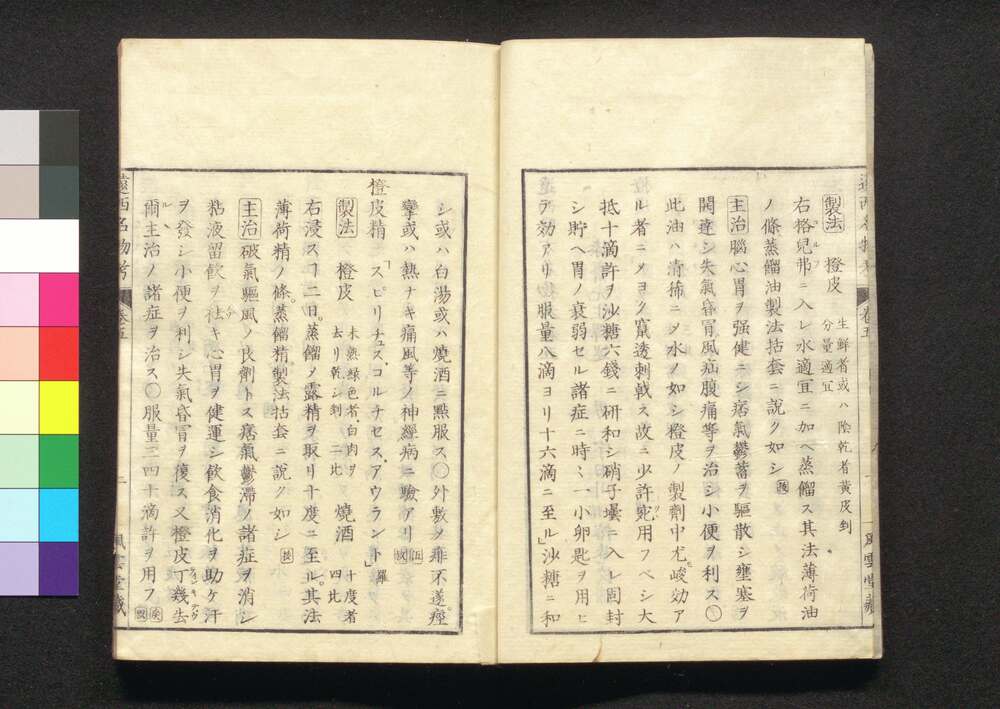 製法 橙皮 生鮮者或ハ陰乾者黄皮剉
分量適宜
右格兒弗ニ入レ水適宜ニ加ヘ蒸餾ス其法薄荷油
ノ條蒸餾油製法括套ニ說ク如シ
主治 腦心胃ヲ强健ニシ痞氣鬱蓄ヲ驅散シ壅塞ヲ
開達シ失氣昏冒風疝腹痛等ヲ治シ小便ヲ利ス○
此油ハ清稀ニメ水ノ如シ橙皮ノ製劑中尤峻効ア
ル者ニメヨク竄透刺戟ス故ニ少許宛用フベシ大
抵十滴許ヲ沙糖六錢ニ研和シ硝子壜ニ入レ固封
シ貯ヘ胃ノ衰弱セル諸症ニ時々一小卵匙ヲ用ヒ
テ効アリ服量八滴ヨリ十六滴ニ至ル」沙糖ニ和
遠西名物考 卷五 風雲堂藏
シ或ハ白湯或ハ燒酒ニ點服ス○外敷メ痱不遂。痙
攣或ハ熱ナキ痛風等ノ神經病ニ驗アリ
橙皮精 「スピリチュス、コルチセス、アウラント」羅
製法 橙皮 未熟綠色者白肉ヲ
去リ乾シ剉 二比 燒酒 十度者
四比
右浸スヿ二日。蒸餾メ露精ヲ取リ十度ニ至ル。其法
薄荷精ノ條。蒸餾精製法括套ニ說ク如シ
主治 破氣驅風ノ良劑トス痞氣鬱滯ノ諸症ヲ消シ
粘液留飮ヲ祛キ心胃ヲ健運シ飮食消化ヲ助ケ汗
ヲ發シ小便ヲ利シ失氣昏冒ヲ復ス又橙皮丁幾去
爾主治ノ諸症ヲ治ス○服量三四十滴許ヲ用フ
遠西名物考 卷五 二 風雲堂藏